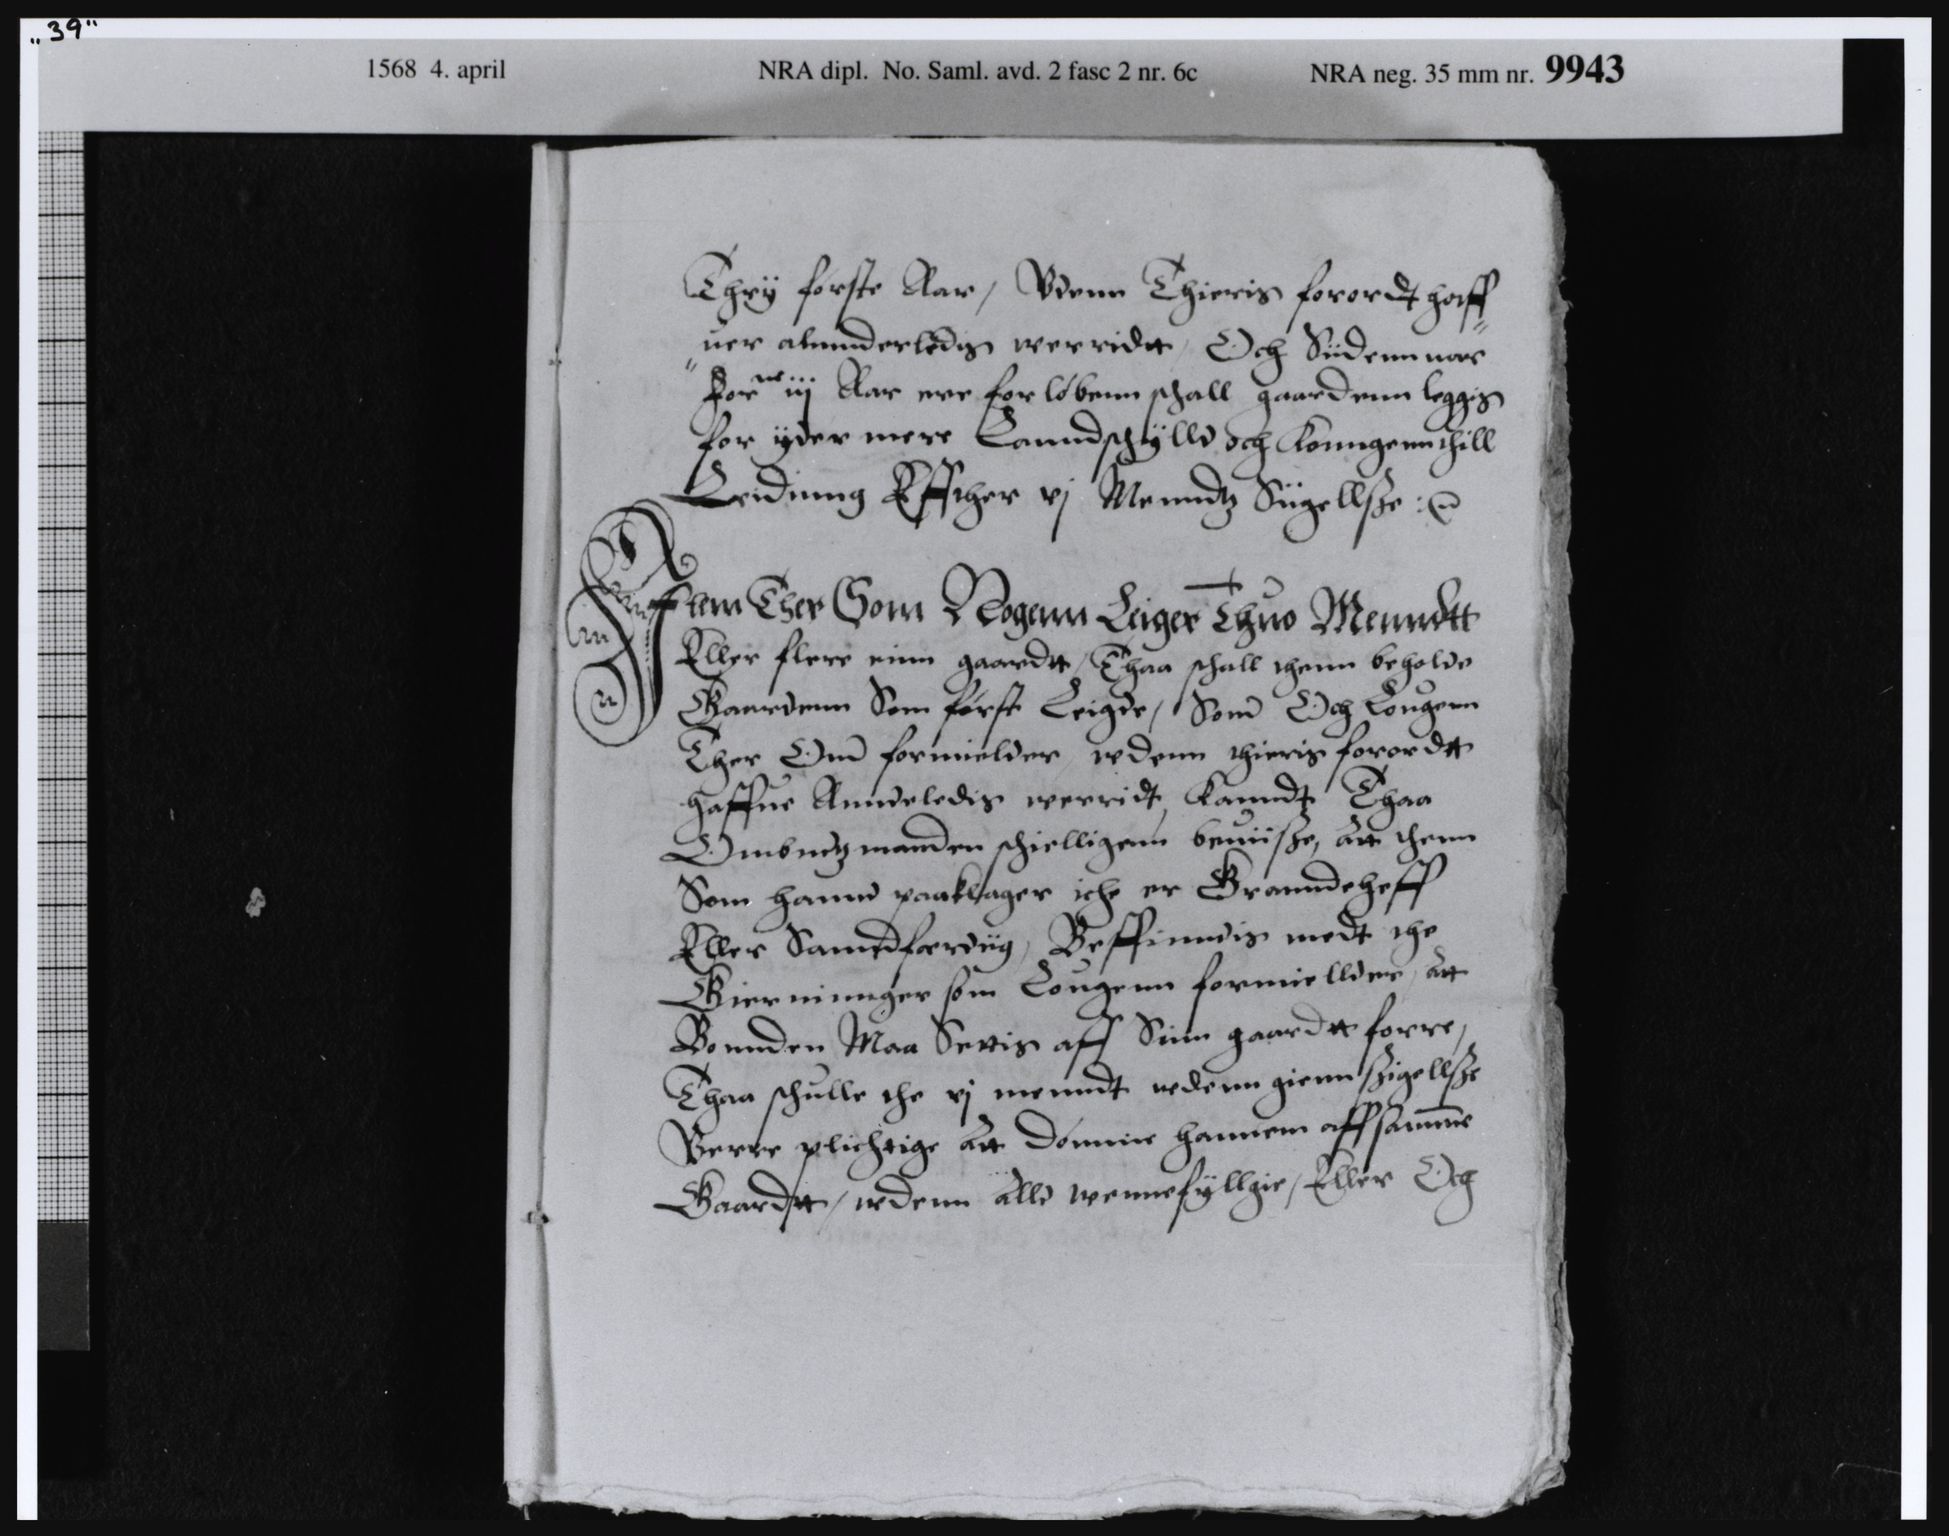 „39"
1568 4. april NRA dipl. No. Saml. avd. 2 fasc 2 nr. 6c NRA neg. 35 mm nr. 9943
Thrÿ første Aar, Vdenn Thieris forordt haff
uer anunderledis werridtt, Och Sidenn naar
Forne iij Aar ere forløbenn schall gaardenn leggis
for ÿder mere Lanndschÿlld och konngenn thill
Leidinng Effther vj Menndtz Siigellsze
Item Ther Som Nogenn Leiger Thuo Menndtt
Eller flere einn gaardtt, Thaa schall thenn beholde
Gaardenn Som først Leigde, Som Och Lougenn
Ther Om formielder, wdenn thieris forordtt
haffue Annderledis werridt, Kanndt Thaa
Ombudtzmanden schielligenn beuiisze, att thenn
Som hannd paaklager iche er Granndeheff
Eller Samdfærdiig, Beffinndis medt the
Gierninnger som Lougenn formiellder, att
Bonnden Maa Settis aff Sinn gaardtt forre,
Thaa schulle the vj menndt wdenn gienn sziigellsze
Verre plichtige att dømme hannem aff samme
Gaardtt, wdenn alld wennefÿllgie, Eller Och